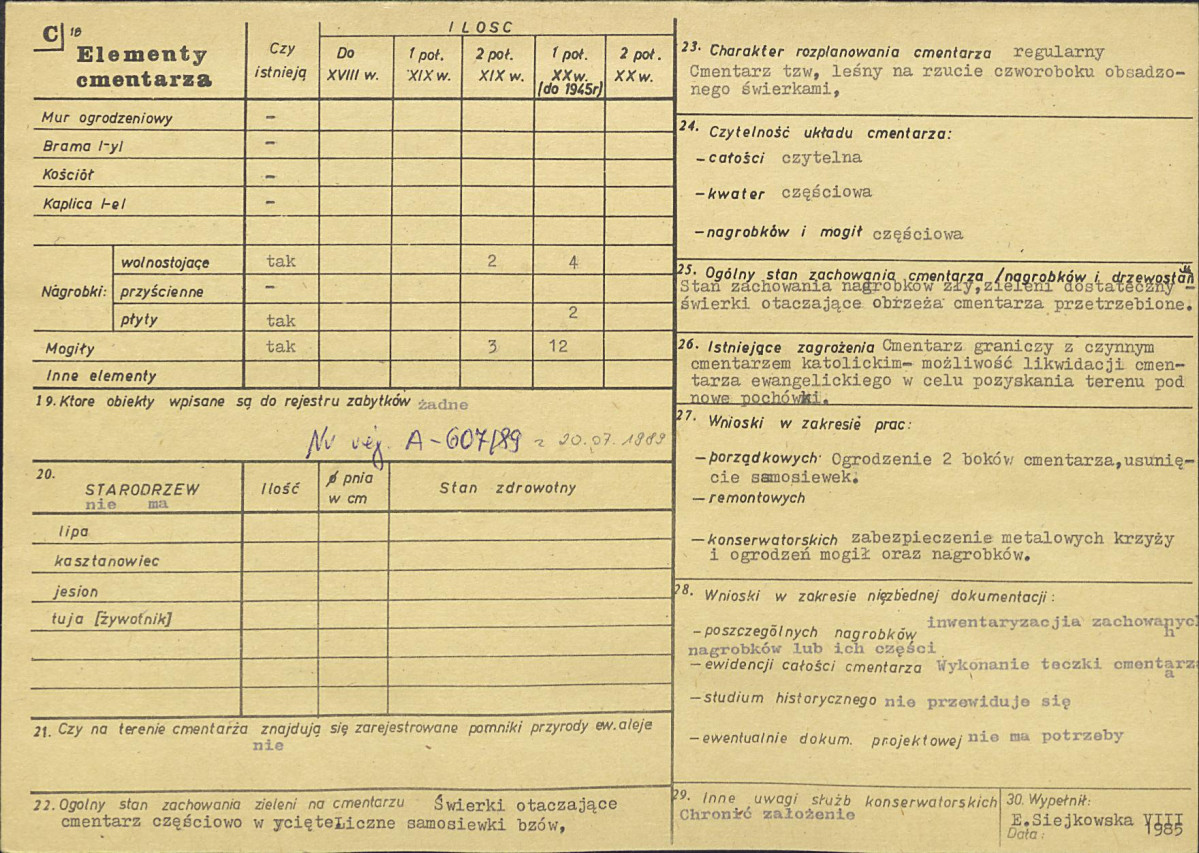 C 18
Elementy cmentarza
Czy istnieją
ILOSC
Do XVIII w.
1 poł. XIX w.
2 poł. XIX w.
1 poł. XX w. (do 1945r)
2 poł. XX w.
Mur ogrodzeniowy -
Brama /-y/ -
Kościół -
Kaplica /-e/ -
Nagrobki:
wolnostojące tak 2 4
przyścienne -
płyty tak 2
Mogiły tak 3 12
Inne elementy
19. Ktore obiekty wpisane są do rejestru zabytków żadne
Nr rej. A-607/89 z 20.07.1989
20.
STARODRZEW
nie ma
Ilość
ø pnia w cm
Stan zdrowotny
lipa
kasztanowiec
jesion
tuja [żywotnik]
21. Czy na terenie cmentarża znajdują się zarejestrowane pomniki przyrody ew. aleje
nie
22. Ogolny stan zachowania zieleni na cmentarzu Świerki otaczające
cmentarz częściowo w ycięte.Liczne samosiewki bzów,
23. Charakter rozplanowania cmentarza regularny
Cmentarz tzw, leśny na rzucie czworoboku obsadzo-
nego świerkami,
24. Czytelność układu cmentarza:
-całości czytelna
-kwater częściowa
-nagrobków i mogił częściowa
25. Ogólny stan zachowania cmentarza /nagrobków i drzewostan
Stan zachowania nagrobków zły,zieleni dostateczny -
świerki otaczające obrzeża cmentarza przetrzebione.
26. Istniejące zagrożenia Cmentarz graniczy z czynnym
cmentarzem katolickim- możliwość likwidacji cmen-
tarza ewangelickiego w celu pozyskania terenu pod
nowe pochówki.
27. Wnioski w zakresie prac:
-porządkowych Ogrodzenie 2 boków cmentarza,usunię-
cie samosiewek.
-remontowych
-konserwatorskich zabezpieczenie metalowych krzyży
i ogrodzeń mogił oraz nagrobków.
28. Wnioski w zakresie nięzbednej dokumentacji:
-poszczególnych nagrobków inwentaryzacjia zachowanych
nagrobków lub ich części
-ewidencji całości cmentarza Wykonanie teczki cmentarza
-studium historycznego nie przewiduje się
-ewentualnie dokum. projektowej nie ma potrzeby
29. Inne uwagi służb konserwatorskich
Chronić założenie
30. Wypełnił:
E.Siejkowska VIII
Data: 1985